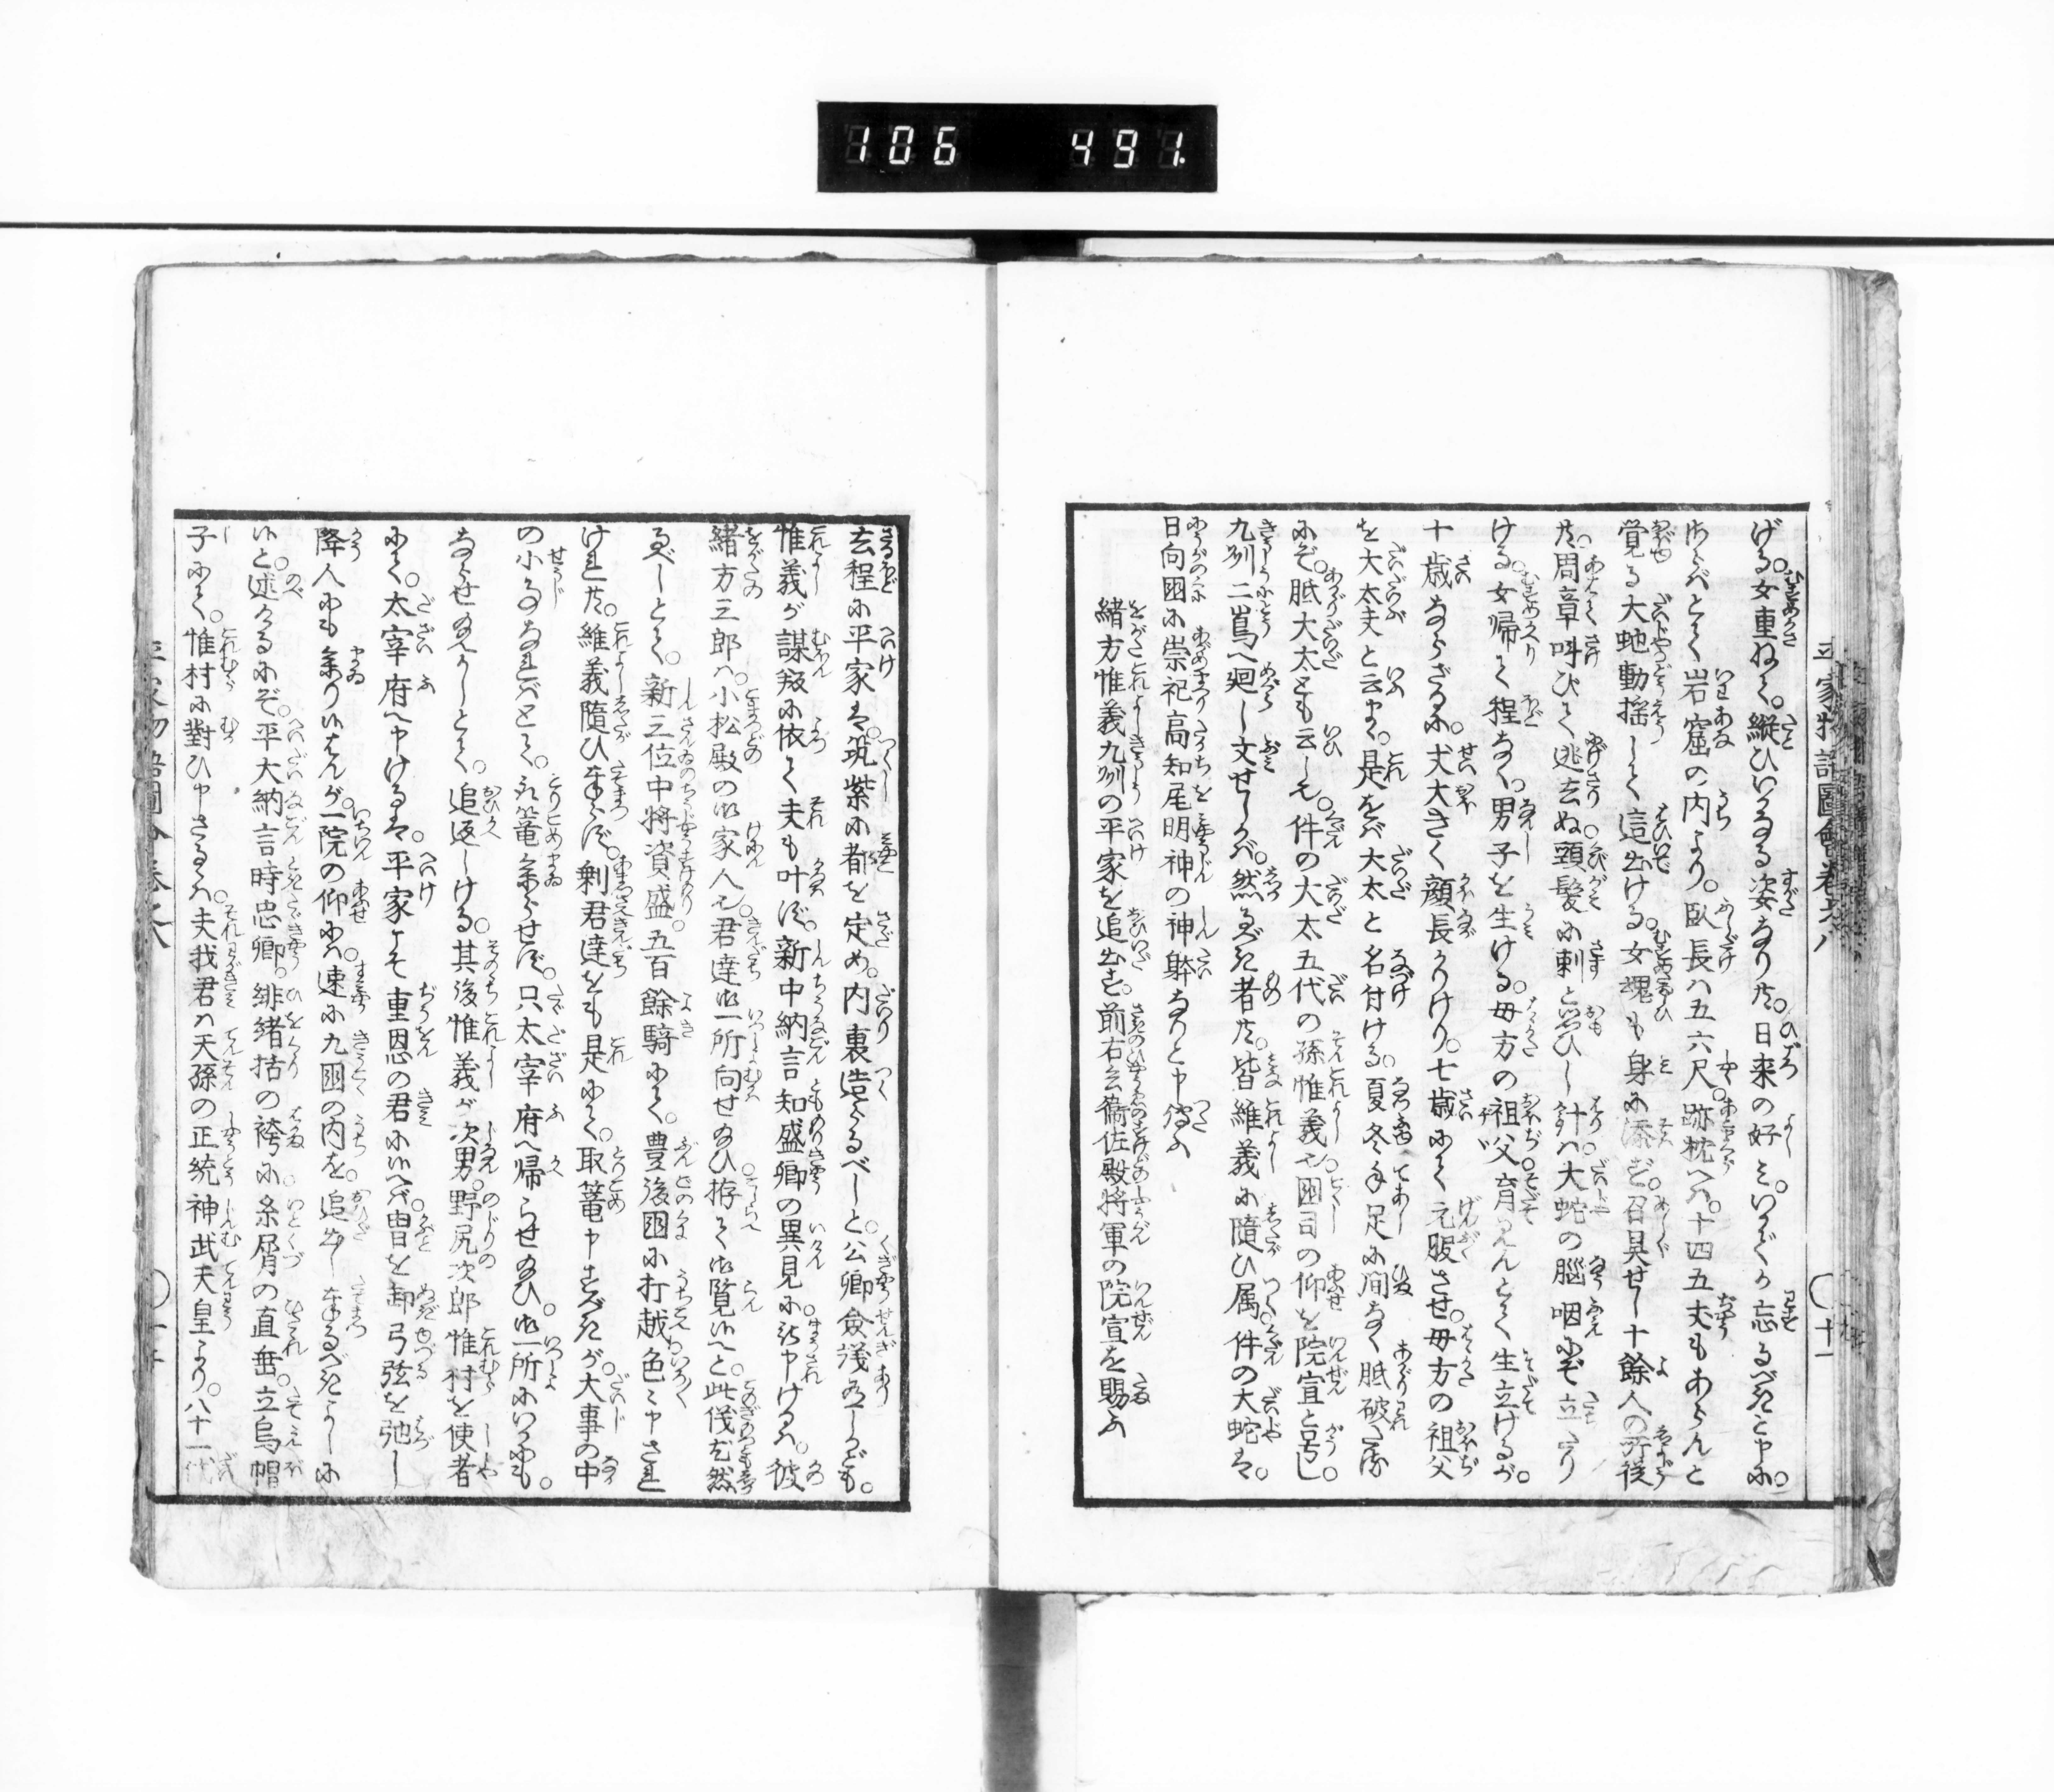 106 491.
平家物語圖會巻之八
十一
げる。女重ねて。縦ひいかなる姿なり共。日来の好ミ。いかでか忘るべきと申に。
さらばとて岩窟の内より。臥長ハ五六尺。跡枕へハ。十四五丈もあらんと
覚る大虵動揺して這出ける。女魂も身に添ず。召具せし十餘人の所従
共。周章叫びて逃去ぬ。頸髪に刺と思ひし針ハ大蛇の腦咽にぞ立たり
ける。女帰て程なく。男子を生ける。母方の祖父育見んとて生立けるが。
十歳ならざるに。丈大きく顔長かりけり。七歳にて元服させ。母方の祖父
を大太夫と云まゝ。是をバ大太と名付ける。夏冬手足に間なく胝破ける
にぞ。胝大太とも云しを。件の大太五代の孫惟義也。国司の仰を院宣と号し。
九州二嶌へ廻し文せしかバ。然るべき者共。皆維義に随ひ属。件の大蛇ハ。
日向国に崇祀高知尾明神の神躰なりと申傳ふ
緒方惟義九州の平家を追出す。前右兵衛佐殿将軍の院宣を賜ふ
去程に平家ハ。筑紫に都を定め。内裏造るべしと。公卿僉議有しかども。
惟義が謀叛に依て夫も叶ず。新中納言知盛卿の異見に被申けるハ。彼
緒方三郎ハ。小松殿の御家人也。君達御一所向せ給ひ拵て御覧候へと。此儀尤然
るべしとて。新三位中将資盛。五百餘騎にて。豊後国に打越色々申され
けれ共。維義随ひ奉らず。剰君達をも是にて。取篭申すべきが。大事の中
の小事なれバとて。取篭参らせず。只太宰府へ帰らせ給ひ。御一所にいかにも。
ならせ給へかしとて。追返しける。其後惟義が次男。野尻次郎惟村を使者
にて。太宰府へ申けるハ。平家こそ重恩の君に候へバ。冑を卸弓弦を弛し
降人にも参り候はんが。一院の仰にハ。速に九国の内を。追出し奉るべきよしに
候と。述けるにぞ。平大納言時忠卿。緋緒括の袴に糸屑の直垂。立烏帽
子にて。惟村に對ひ申さるゝハ。夫我君ハ天孫の正統神武天皇より。八十一代